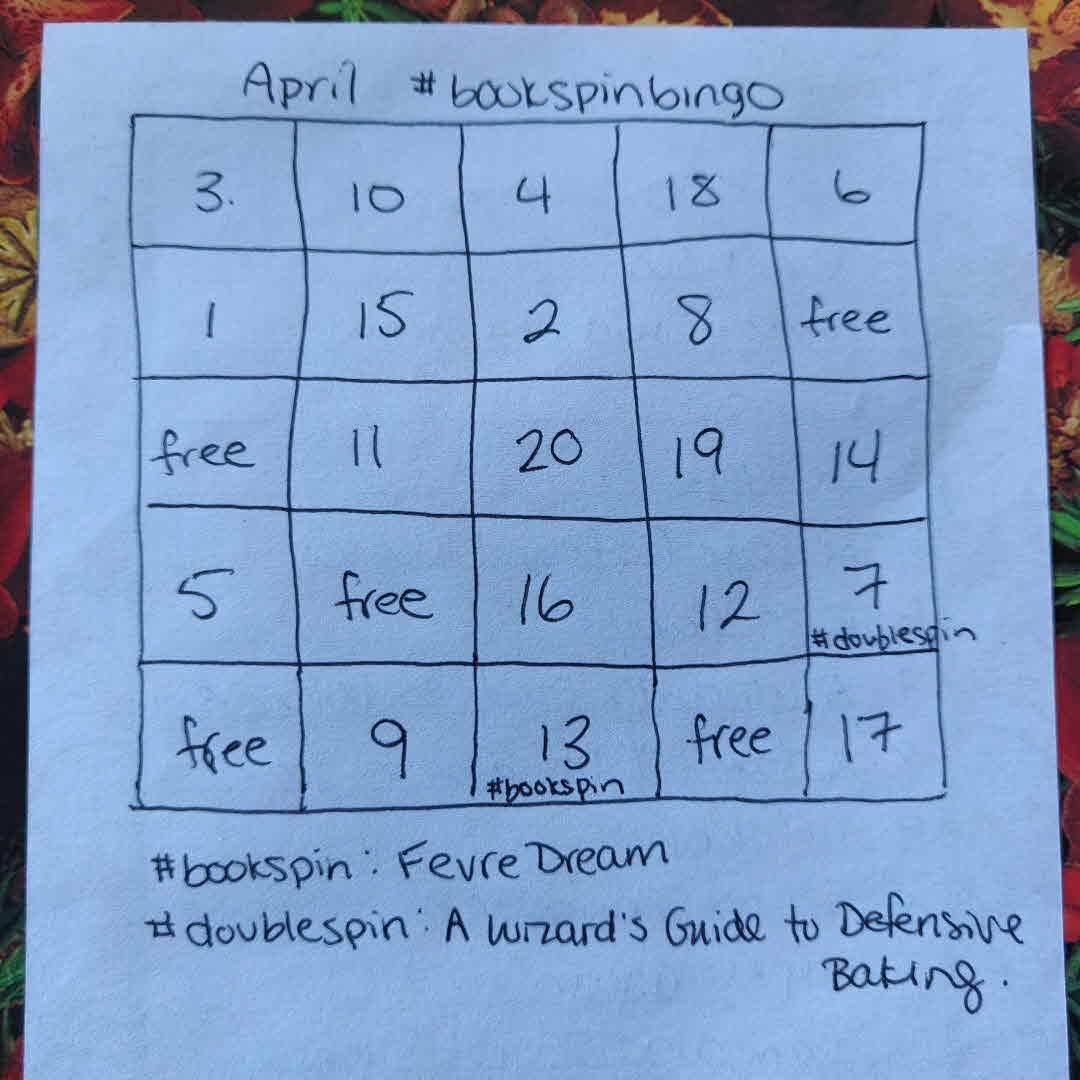 April #bookspinbingo
3. 10 4 18 6
1 15 2 8 free
free 11 20 19 14
5 free 16 12 7
#doublespin
free 9 13 free 17
#bookspin
#bookspin: Fevre Dream
#doublespin: A Wizard's Guide to Defensive
Baking.